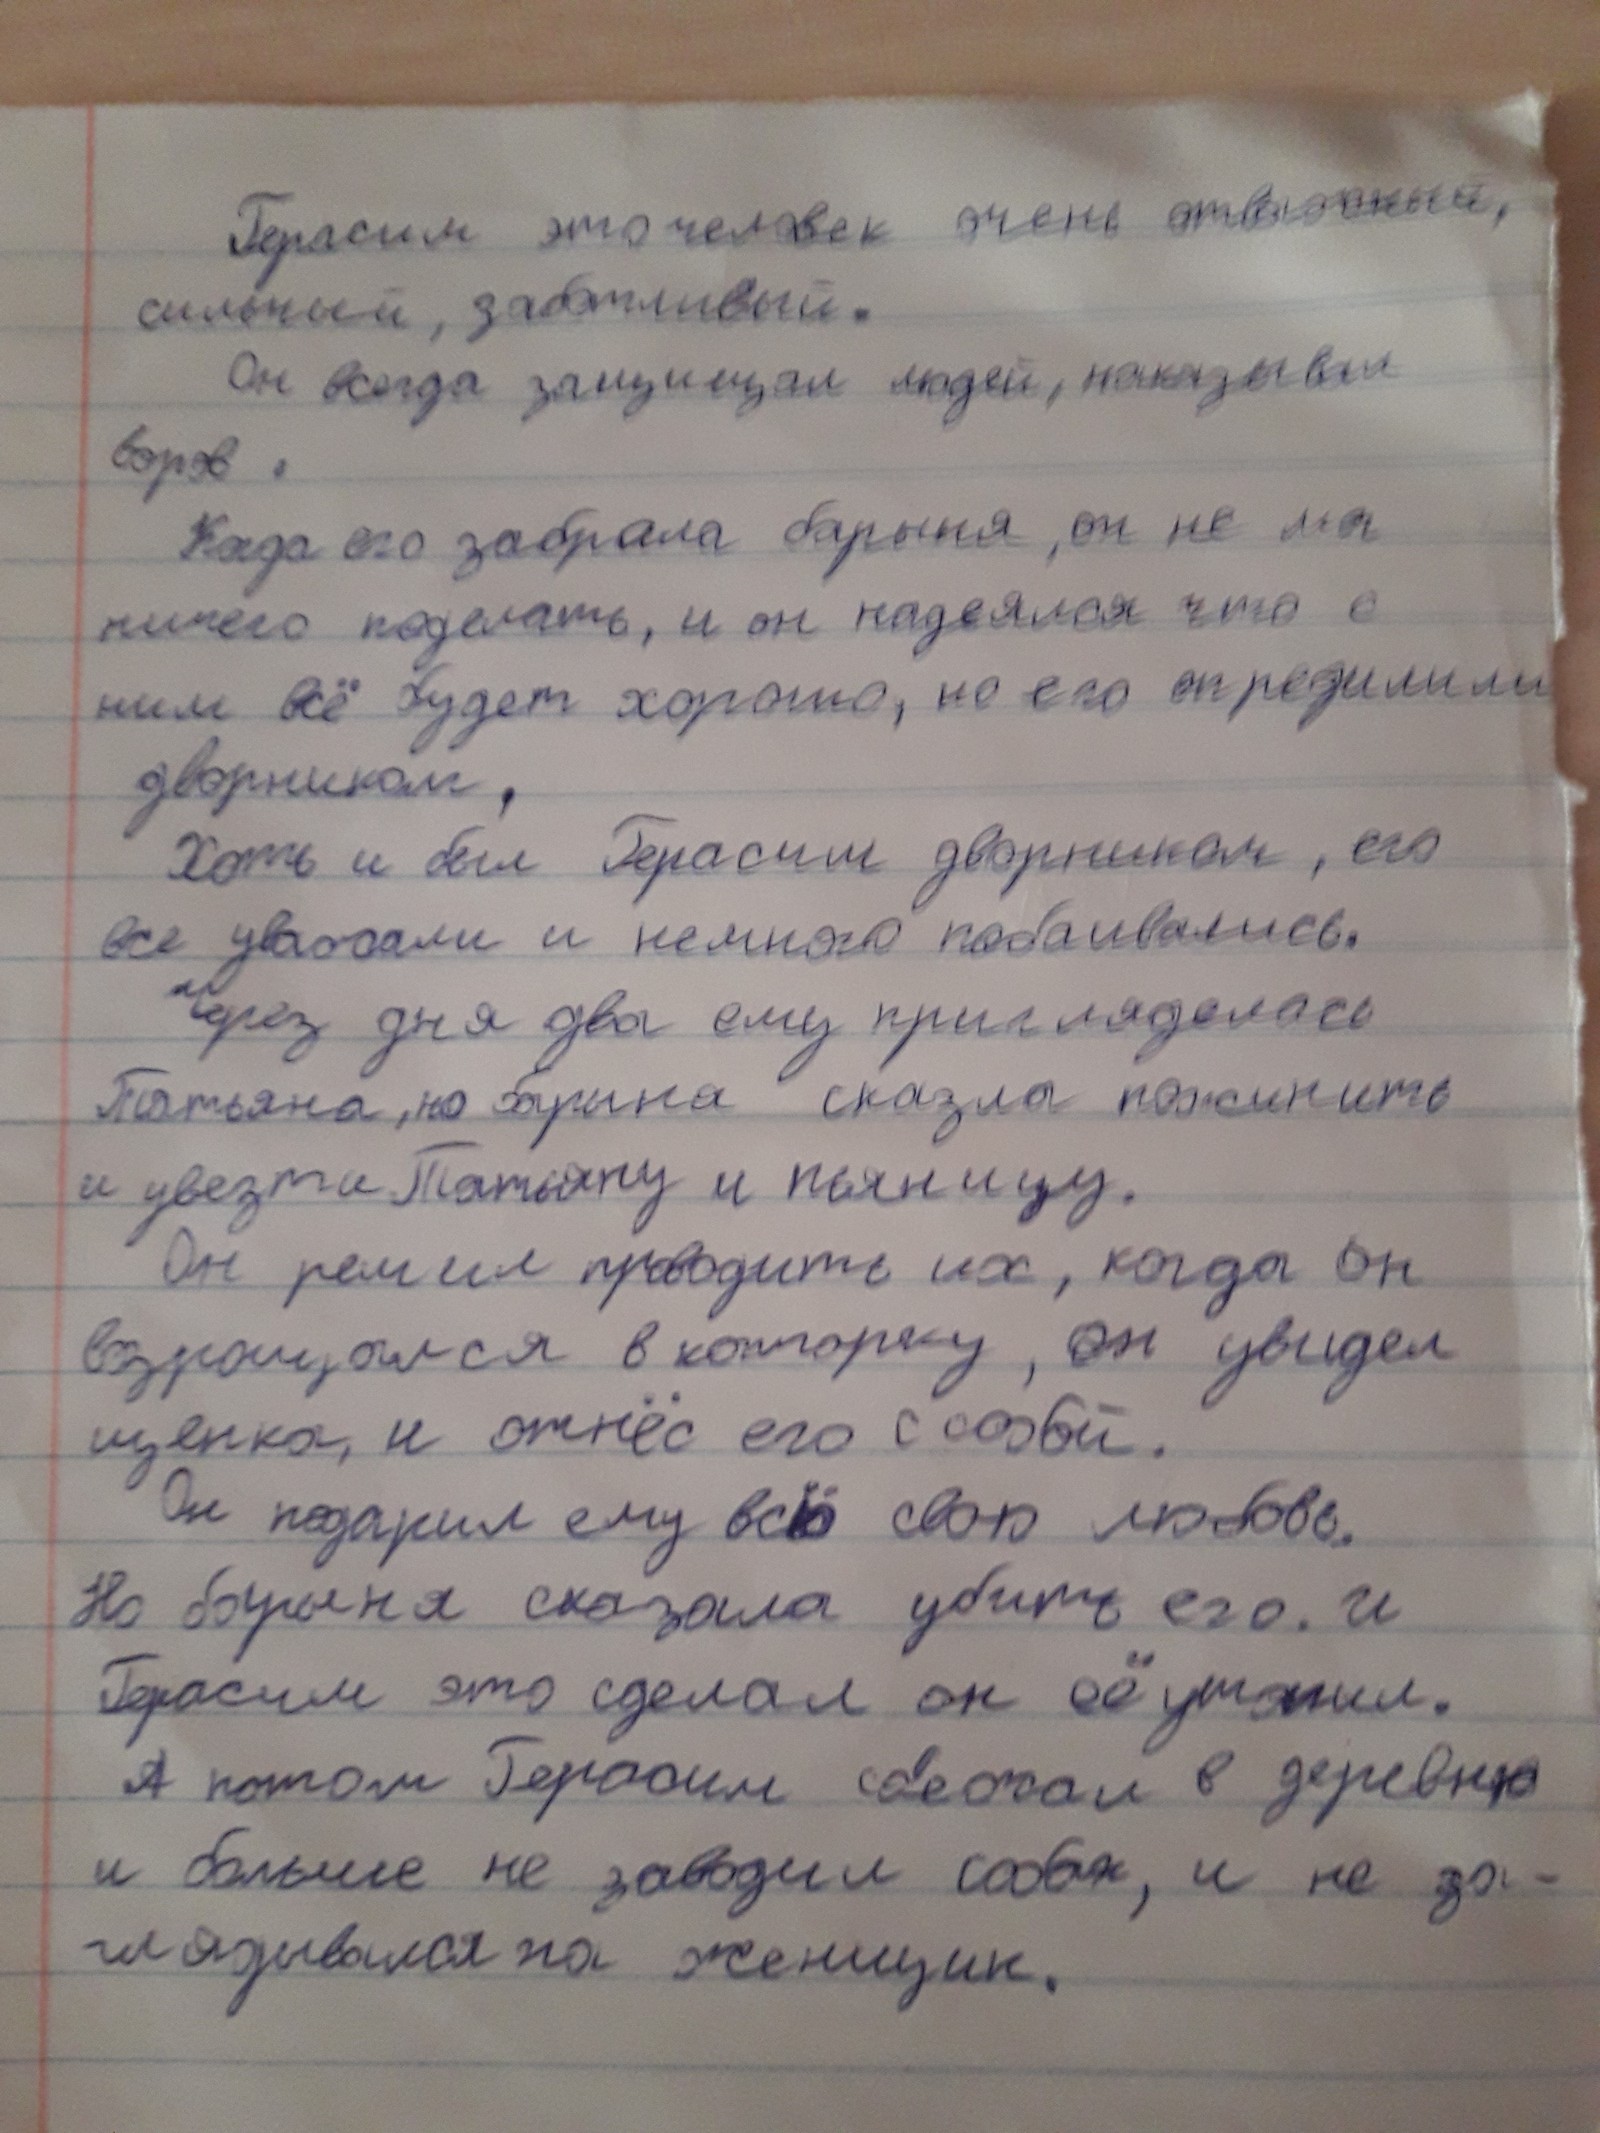 Герасим это человек очень отважный,
сильный, заботливый.
Он всегда защищал людей, наказывал
воров.
Кагда его забрала барыня, он не мог
ничего поделать, и он надеялся что с
ним всё будет хорошо, но его определили
дворником.
Хоть и был Герасим дворником, его
все уважали и немного побаивались.
Через дня два ему пригляделась
Татьяна, но барына сказла поженить
и увезти Татьяну и пьяницу.
Он решил проводить их, когда он
возращался в каморку, он увидел
щенка, и отнёс его с собой.
Он подарил ему всю свою любовь.
Но барыня сказала убить его. и
Герасим это сделал он её утопил.
А потом Герасим сбежал в деревню
и больше не заводил собак, и не за-
глядывался на женщин.